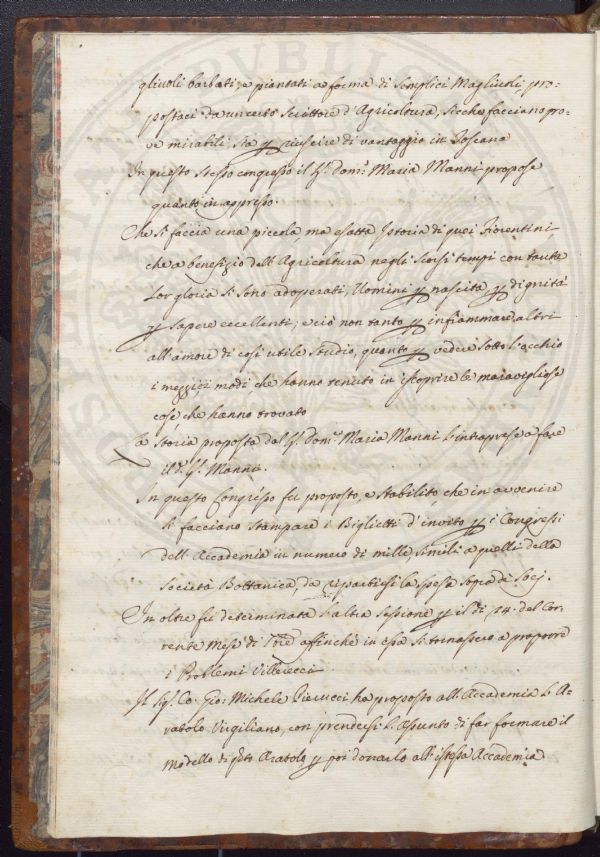 gliuoli barbati, e piantati a forma di semplici Magliuoli, pro-
postaci da un certo Scrittore d'Agricoltura, sicche facciano pro-
ve mirabili, sia p riuscire di vantaggio in Toscana
In questo stesso congresso il Sr. Dom.co Maria Manni propose
quanto in appresso.
Che si faccia una piccola, ma esatta Istoria di quei Fiorentini
che a benefizio dell'Agricoltura negli scorsi tempi con tanta
Lor gloria si sono adoperati, Uomini p nascita, p dignità
p sapere eccellenti, e ciò non tanto p infiammare altri
all'amore di così utile studio, quanto p vedere sotto l'occhio
i mezzi, i modi, che hanno tenuto in iscoprire le maravigliose
cose, che hanno trovato
La Storia proposta dal Sr. Dom.co Maria Manni l'intraprese a fare
il d.o Sr. Manni.
In questo Congresso fu proposto, e stabilito, che in avvenire
si facciano stampare i Biglietti d'invito p i Congressi
dell'Accademia in numero di mille, simili a quelli della
Società Bottanica, da ripartirsi la spesa sopra i Socj.
In oltre fu determinata l'altra sessione p il dì 24. del Cor-
rente Mese di affinchè in essa si tornassero a proporre
i Problemi Villerecci
Il Sig. Co. Gio: Michele ha proposto all'Accademia l'A-
ratolo Virgiliano, con prendersi l'assunto di far formare il
Modello di q.to Aratolo p poi donarlo all'istessa Accademia